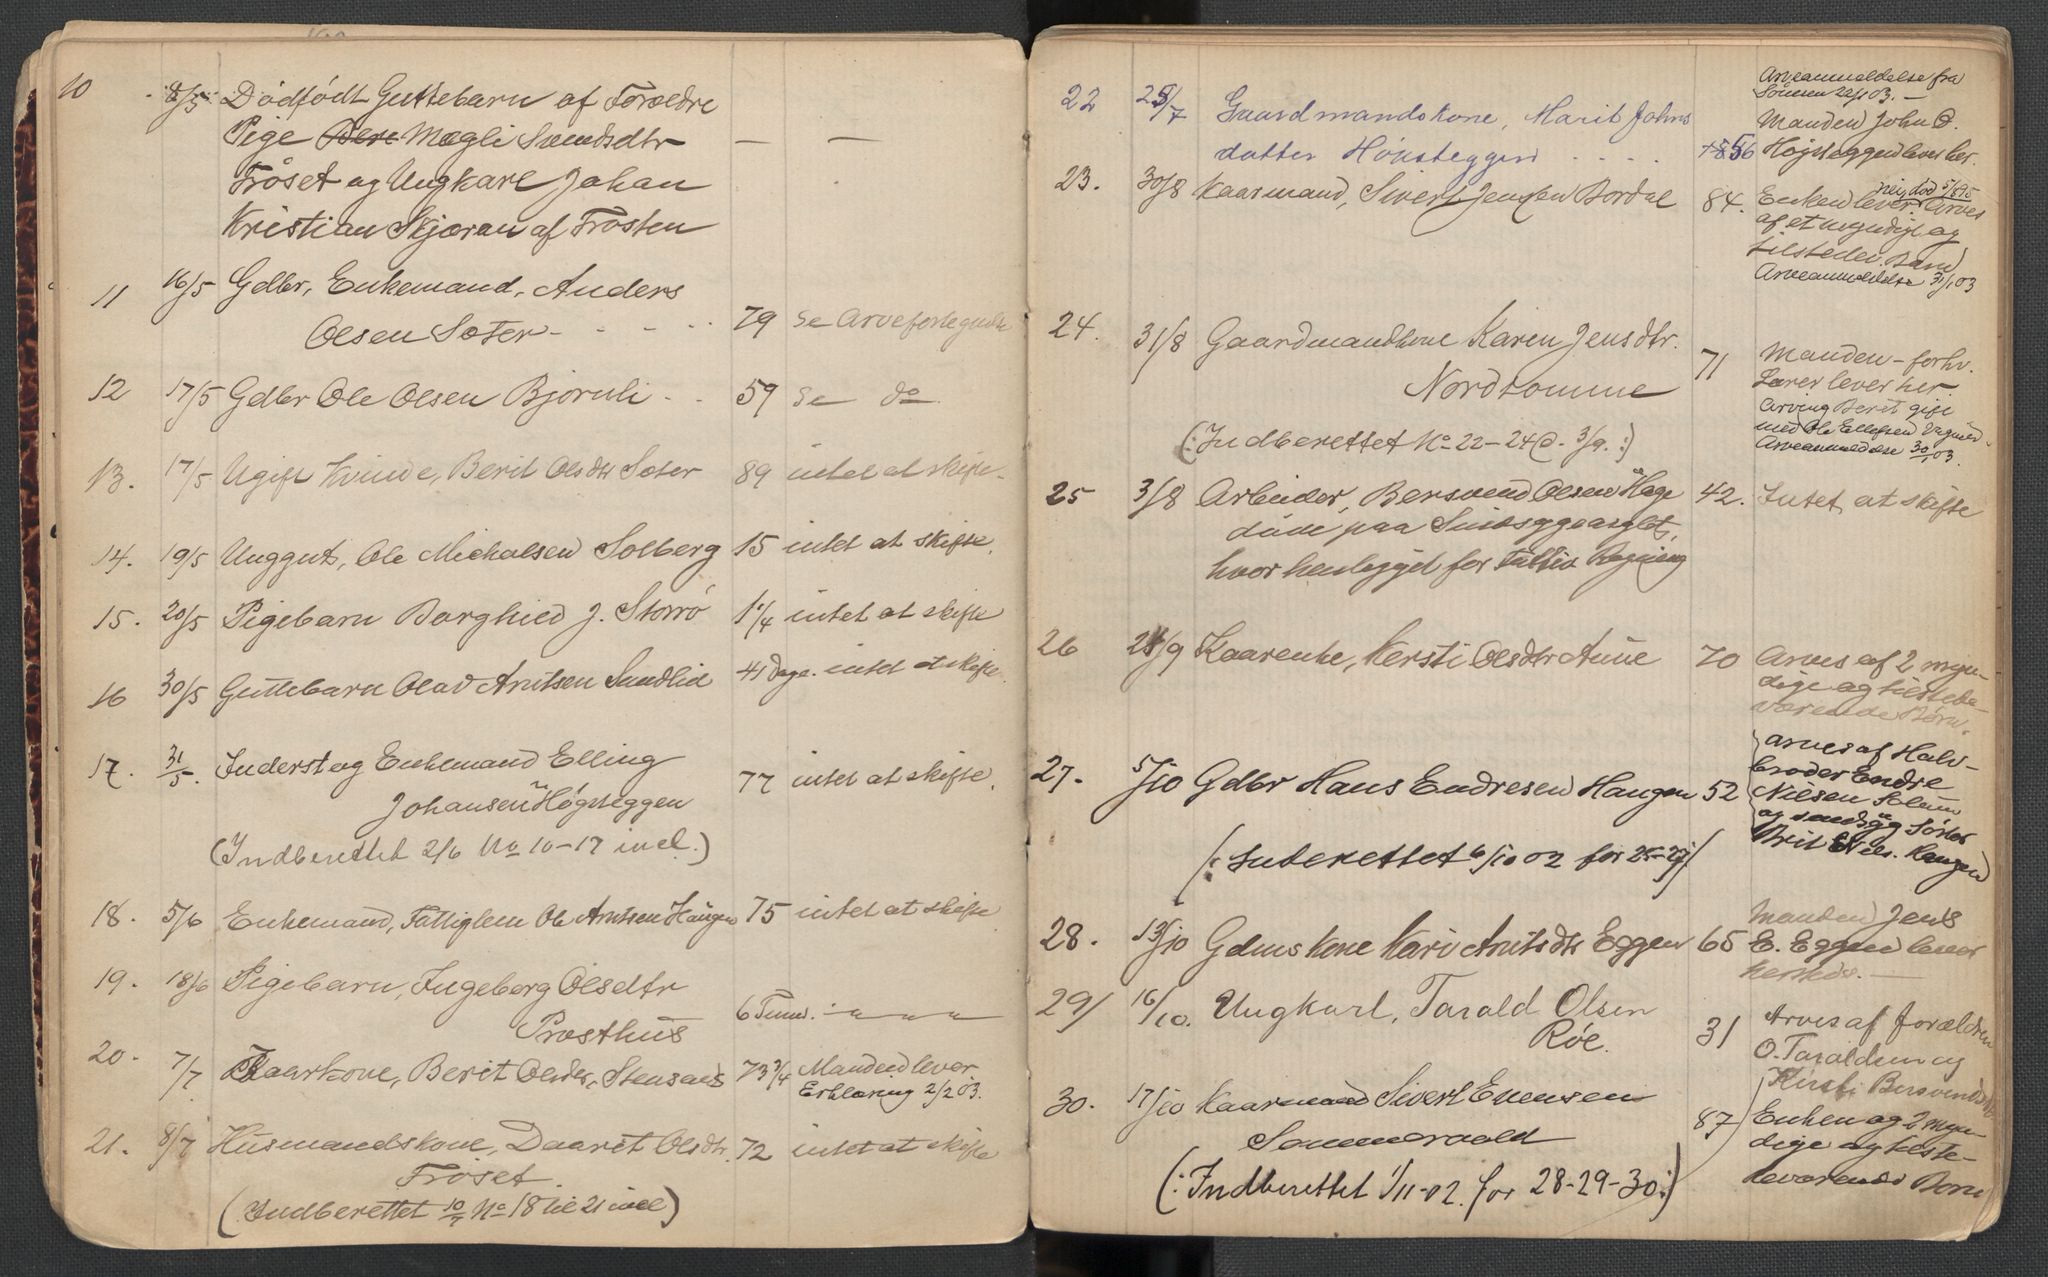 10 8/5 Dödfödt Guttebarn af Forældre
Pige Mægli Svendsdtr — —
Fröset og Ungkarl Johan
Kristian Skjæran af Frosten
11 16/5 Gdbr, Enkemand, Anders
Olsen Sæter - - - - 79 se Arvefortegnelse
12 17/5 Gdbr Ole Olsen Bjørnli - - 59 Se do
13. 17/5 Ugift Kvinde, Berit Olsdtr Sæter 89 intet at skifte.
14. 19/5 Unggut, Ole Michalsen Solberg 15 intet at skifte.
15. 20/5 Pigebarn Borghild J. Storrö 1 1/4 intet at skifte
16 30/5 Guttebarn Olav Arntsen Sundlid 41 Dage. intet at skifte.
17. 31/5. Inderst og Enkemand Elling
Johansen Högseggen 77 intet at skifte.
(Indberettet 2/6 No 10-17 incl.)
18. 5/6 Enkemand, Fattiglem Ole Arntsen Haugen 75 intet at skifte
19. 18/6 Pigebarn, Ingeborg Olsdtr
Præsthus 6 Timer. — " — " — "
20. 7/7 Kaarkone, Berit Olsdtr, Stensaas 73 3/4 Manden lever
Erklæring 2/2 03.
21. 8/7 Husmandskone, Daaret Olsdtr. 72 intet at skifte
Fröset.
(Indberettet 10/7 No 18 til 21 incl)
Arveanmeldelse fra
Sönnen 22/1 03. —
22 25/7 Gaardmandskone, Marit Johns Manden John O.
datter Hönseggen . . . . 56 Højseggen lever her.
23. 30/8 Kaarmand, Sivert Jensen Bordal 84. Enken lever nei, död 5/8 95 Arves
af et myndigt og
tilstedev. Barn)
Arveanmeldelse 31/1 03
24. 31/8 Gaardmandkone Karen Jensdtr.
Nordtømme 71 Manden - forhv.
Lærer lever her.
Arving Beret gift
med Ole Ellefsen
(: Indberettet No 22-24 d. 3/9. :) Arveanmeldelse 30/1 03.
25 3/8 Arbeider, Bersvend Olsen Hage 42. Intet at skifte
döde paa Sindsygeasylet,
hvor henlagt for fattig Regning
26 21/9 Kaarenke, Kersti Olsdtr Aune 70 Arves af 2 myn-
dige og tilstede-
værende Børn.
27. 5/10 Gdbr Hans Endresen Haugen 52 Arves af Halv-
broder Endre
Nilsen Solum
og sindsyg Söster
Brit E Haugen
(: Inberettet 6/10 02 for 25-27)
28. 13/10 Gdmskone Kari Arntsdtr Eggen 65 Manden Jens
E. Eggen lever
herstds. —
29/ 16/10. Ungkarl, Tarald Olsen
Röe. 31 Arves af forældre
O. Taraldsen og
Kirsti Bersvendsdtr
30. 17/10 Kaarmand Sivert Evensen 87 Enken og 2 myn-
Sommervold dige og tilste-
deværende Børn
(: Indberettet 1/11-02. for 28-29-30 :)